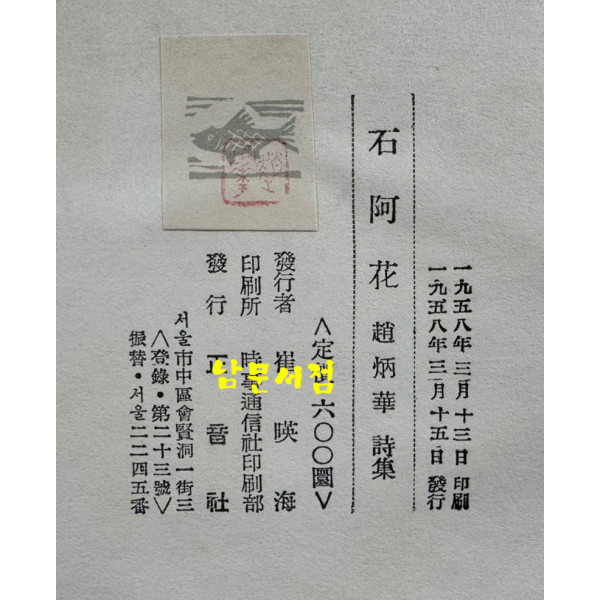 一九五八年 三月 十三日 印刷
一九五八年 三月 十五日 發行
石阿花 趙炳華 詩集
<定價 六〇〇圜>
發行者 崔暎海
印刷所 時事通信社印刷部
發行 正音社
서울市中區會賢洞一街三
<登錄·第二十三號>
振替·서울二二四五番
남문서점